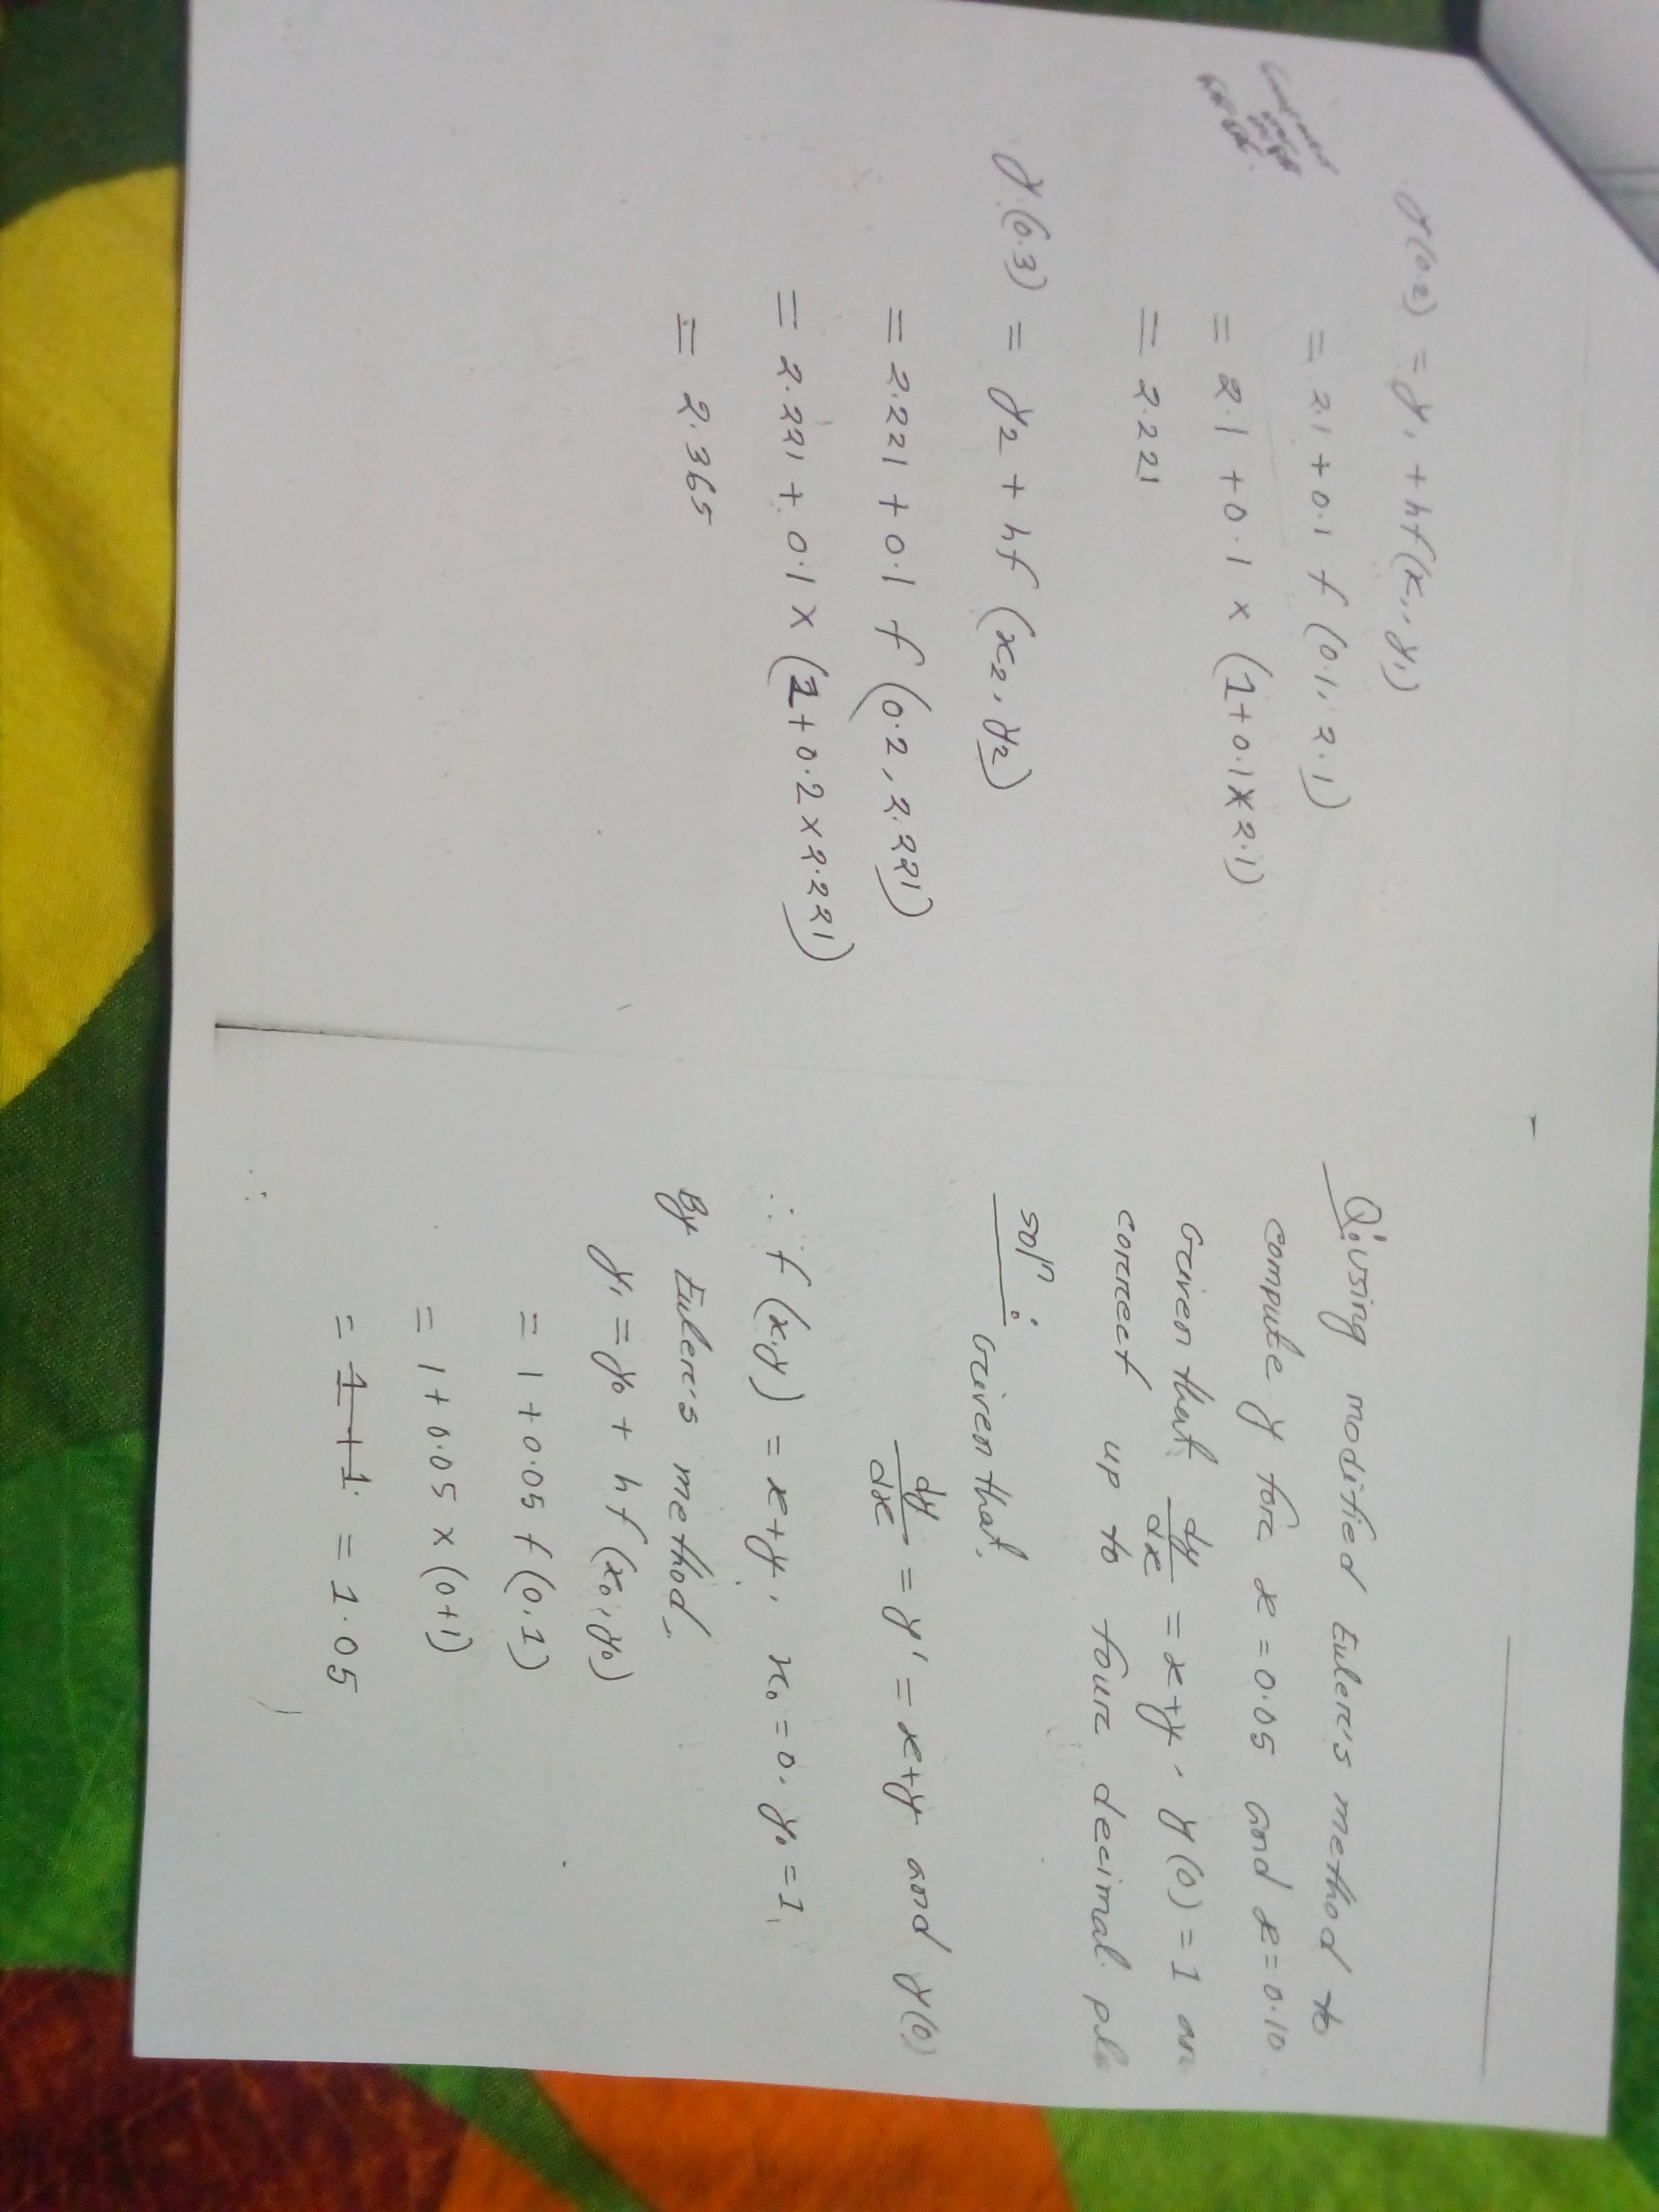 y(0.2) = y₁ + hf(x₁, y₁)
= 2.1 + 0.1 f (0.1, 2.1)
= 2.1 + 0.1 × (1+0.1×2.1)
= 2.221
y(0.3) = y₂ + hf (x₂, y₂)
= 2.221 + 0.1 f (0.2, 2.221)
= 2.221 + 0.1 × (1+0.2×2.221)
= 2.365
Q: using modified Euler's method to
compute y for x = 0.05 and x = 0.10
Given that dy/dx = x+y, y(0) = 1
correct up to four decimal
solⁿ :
Given that,
dy/dx = y' = x+y and y(0)
∴ f (x,y) = x+y, x₀ = 0, y₀ = 1,
By Euler's method,
y₁ = y₀ + hf (x₀, y₀)
= 1 + 0.05 f (0,1)
= 1 + 0.05 × (0+1)
= 1 + 1 = 1.05
∴